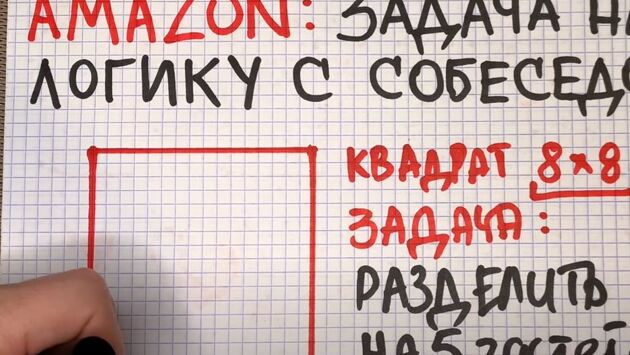 AMAZON: ЗАДАЧА НА
ЛОГИКУ С СОБЕСЕДО
КВАДРАТ 8×8
ЗАДАЧА:
РАЗДЕЛИТЬ
НА 5 частей